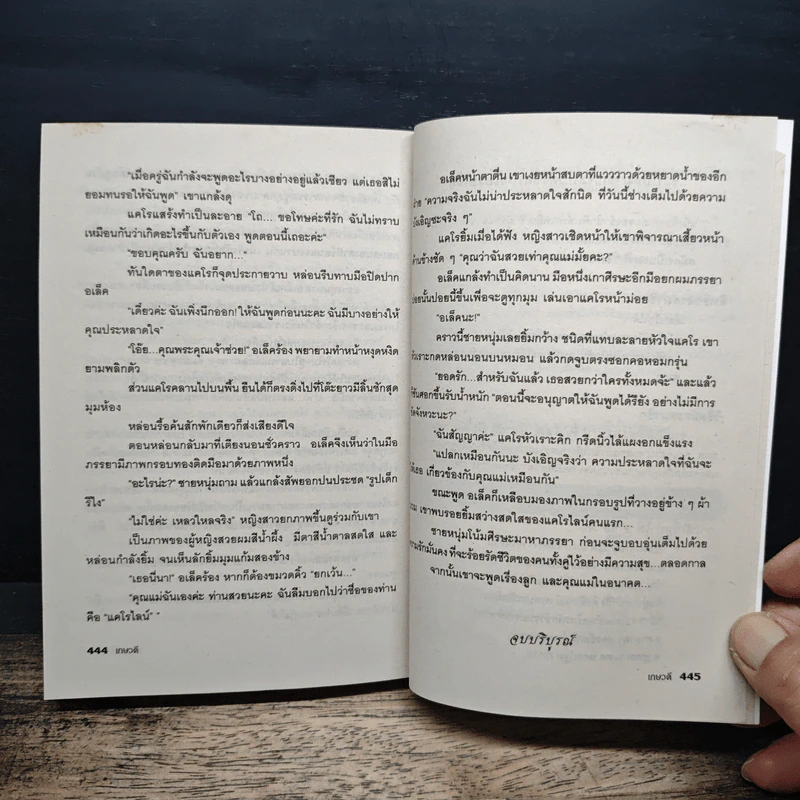 "เมื่อครู่ฉันกำลังจะพูดอะไรบางอย่างอยู่แล้วเชียว แต่เธอสิไม่
ยอมทนรอให้ฉันพูด" เขาแกล้งดุ
แคโรแสร้งทำเป็นละอาย "โถ... ขอโทษค่ะที่รัก ฉันไม่ทราบ
เหมือนกันว่าเกิดอะไรขึ้นกับตัวเอง พูดตอนนี้เถอะค่ะ"
"ขอบคุณครับ ฉันอยาก..."
ทันใดตาของแคโรก็จุดประกายวาบ หล่อนรีบทาบมือปิดปาก
อเล็ค
"เดี๋ยวค่ะ ฉันเพิ่งนึกออก! ให้ฉันพูดก่อนนะคะ ฉันมีบางอย่างให้
คุณประหลาดใจ"
"โอ๊ย...คุณพระคุณเจ้าช่วย!" อเล็คร้อง พยายามทำหน้าหงุดหงิด
ยามพลิกตัว
ส่วนแคโรคลานไปบนพื้น ยืนได้ก็ตรงดิ่งไปที่โต๊ะยาวมีลิ้นชักสุด
มุมห้อง
หล่อนรื้อค้นสักพักเดียวก็ส่งเสียงดีใจ
ตอนหล่อนกลับมาที่เตียงนอนชั่วคราว อเล็คจึงเห็นว่าในมือ
ภรรยามีภาพกรอบทองติดมือมาด้วยภาพหนึ่ง
"อะไรน่ะ?" ชายหนุ่มถาม แล้วแกล้งสัพยอกปนประชด "รูปเด็ก
รึไง"
"ไม่ใช่ค่ะ เหลวไหลจริง" หญิงสาวยกภาพขึ้นดูร่วมกับเขา
เป็นภาพของผู้หญิงสวยผมสีน้ำผึ้ง มีตาสีน้ำตาลสดใส และ
หล่อนกำลังยิ้ม จนเห็นลักยิ้มมุมแก้มสองข้าง
"เธอนี่นา!" อเล็คร้อง หากก็ต้องขมวดคิ้ว "ยกเว้น..."
"คุณแม่ฉันเองค่ะ ท่านสวยนะคะ ฉันลืมบอกไปว่าชื่อของท่าน
คือ "แคโรไลน์" "
444 เกษวดี
อเล็คหน้าตาตื่น เขาเงยหน้าสบตาที่แวววาวด้วยหยาดน้ำของอีก
"ความจริงฉันไม่น่าประหลาดใจสักนิด ที่วันนี้ช่างเต็มไปด้วยความ
บังเอิญซะจริง ๆ"
แคโรยิ้มเมื่อได้ฟัง หญิงสาวเชิดหน้าให้เขาพิจารณาเสี้ยวหน้า
ด้านข้างชัด ๆ "คุณว่าฉันสวยเท่าคุณแม่มั้ยคะ?"
อเล็คแกล้งทำเป็นคิดนาน มือหนึ่งเกาศีรษะอีกมือยกผมภรรยา
ปอยนั้นปอยนี้ขึ้นเพื่อจะดูทุกมุม เล่นเอาแคโรหน้าม่อย
"อเล็คนะ!"
คราวนี้ชายหนุ่มเลยยิ้มกว้าง ชนิดที่แทบละลายหัวใจแคโร เขา
หัวเราะกดหล่อนนอนบนหมอน แล้วกดจูบตรงซอกคอหอมกรุ่น
"ยอดรัก...สำหรับฉันแล้ว เธอสวยกว่าใครทั้งหมดจ้ะ" และแล้ว
ใช้ศอกขึ้นรับน้ำหนัก "ตอนนี้จะอนุญาตให้ฉันพูดได้รึยัง อย่างไม่มีการ
จังหวะนะ?"
"ฉันสัญญาค่ะ" แคโรหัวเราะคิก กรีดนิ้วไล้แผงอกแข็งแรง
"แปลกเหมือนกันนะ บังเอิญจริงว่า ความประหลาดใจที่ฉันจะ
เธอ เกี่ยวข้องกับคุณแม่เหมือนกัน"
ขณะพูด อเล็คก็เหลือบมองภาพในกรอบรูปที่วางอยู่ข้าง ๆ ผ้า
เขาพบรอยยิ้มสว่างสดใสของแคโรไลน์คนแรก...
ชายหนุ่มโน้มศีรษะมาหาภรรยา ก่อนจะจูบอบอุ่นเต็มไปด้วย
ความรักมั่นคง ที่จะร้อยรัดชีวิตของคนทั้งคู่ไว้อย่างมีความสุข...ตลอดกาล
จากนั้นเขาจะพูดเรื่องลูก และคุณแม่ในอนาคต...
จบบริบูรณ์
เกษวดี 445